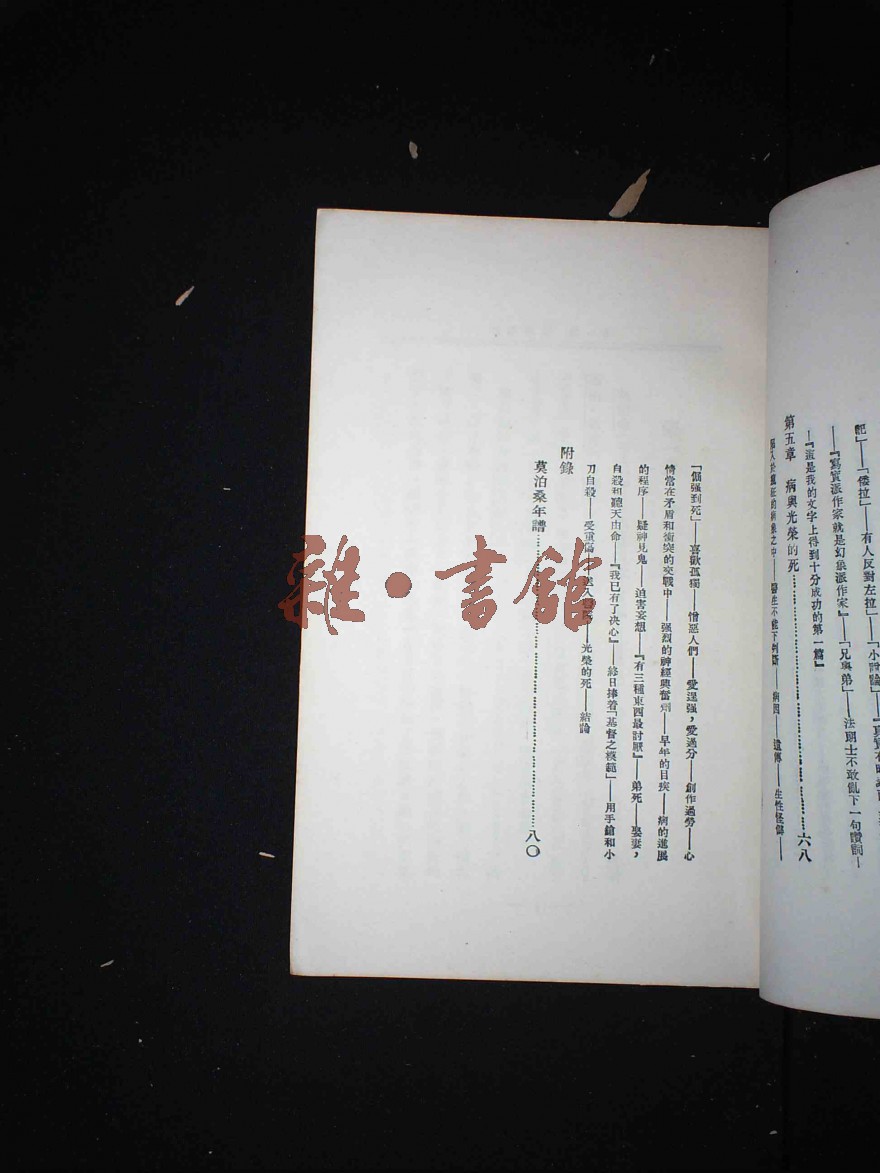 記」——「倭拉」——有人反對左拉——「小說論」——
——『寫實派作家就是幻象派作家』——「兄與弟」——法朗士不敢亂下一句讚詞—
—『這是我的文字上得到十分成功的第一篇』
第五章 病與光榮的死……六八
醫生不能下判斷——病因——遺傳——生性怪僻——
「倔强到死」——喜歡孤獨——憎惡人們——愛逞强，愛過分——創作過勞——心
情當在矛盾和衝突的交戰中——强烈的神經興奮劑——早年的目疾——病的進展
的程序——疑神見鬼——迫害妄想——『有三種東西最討厭』——弟死——娶妻，
自殺和聽天由命——『我已有了决心』——終日捧着「基督之模範」——用手鎗和小
刀自殺——受重傷——光榮的死——結論
附錄
莫泊桑年譜……八〇
雜·書館